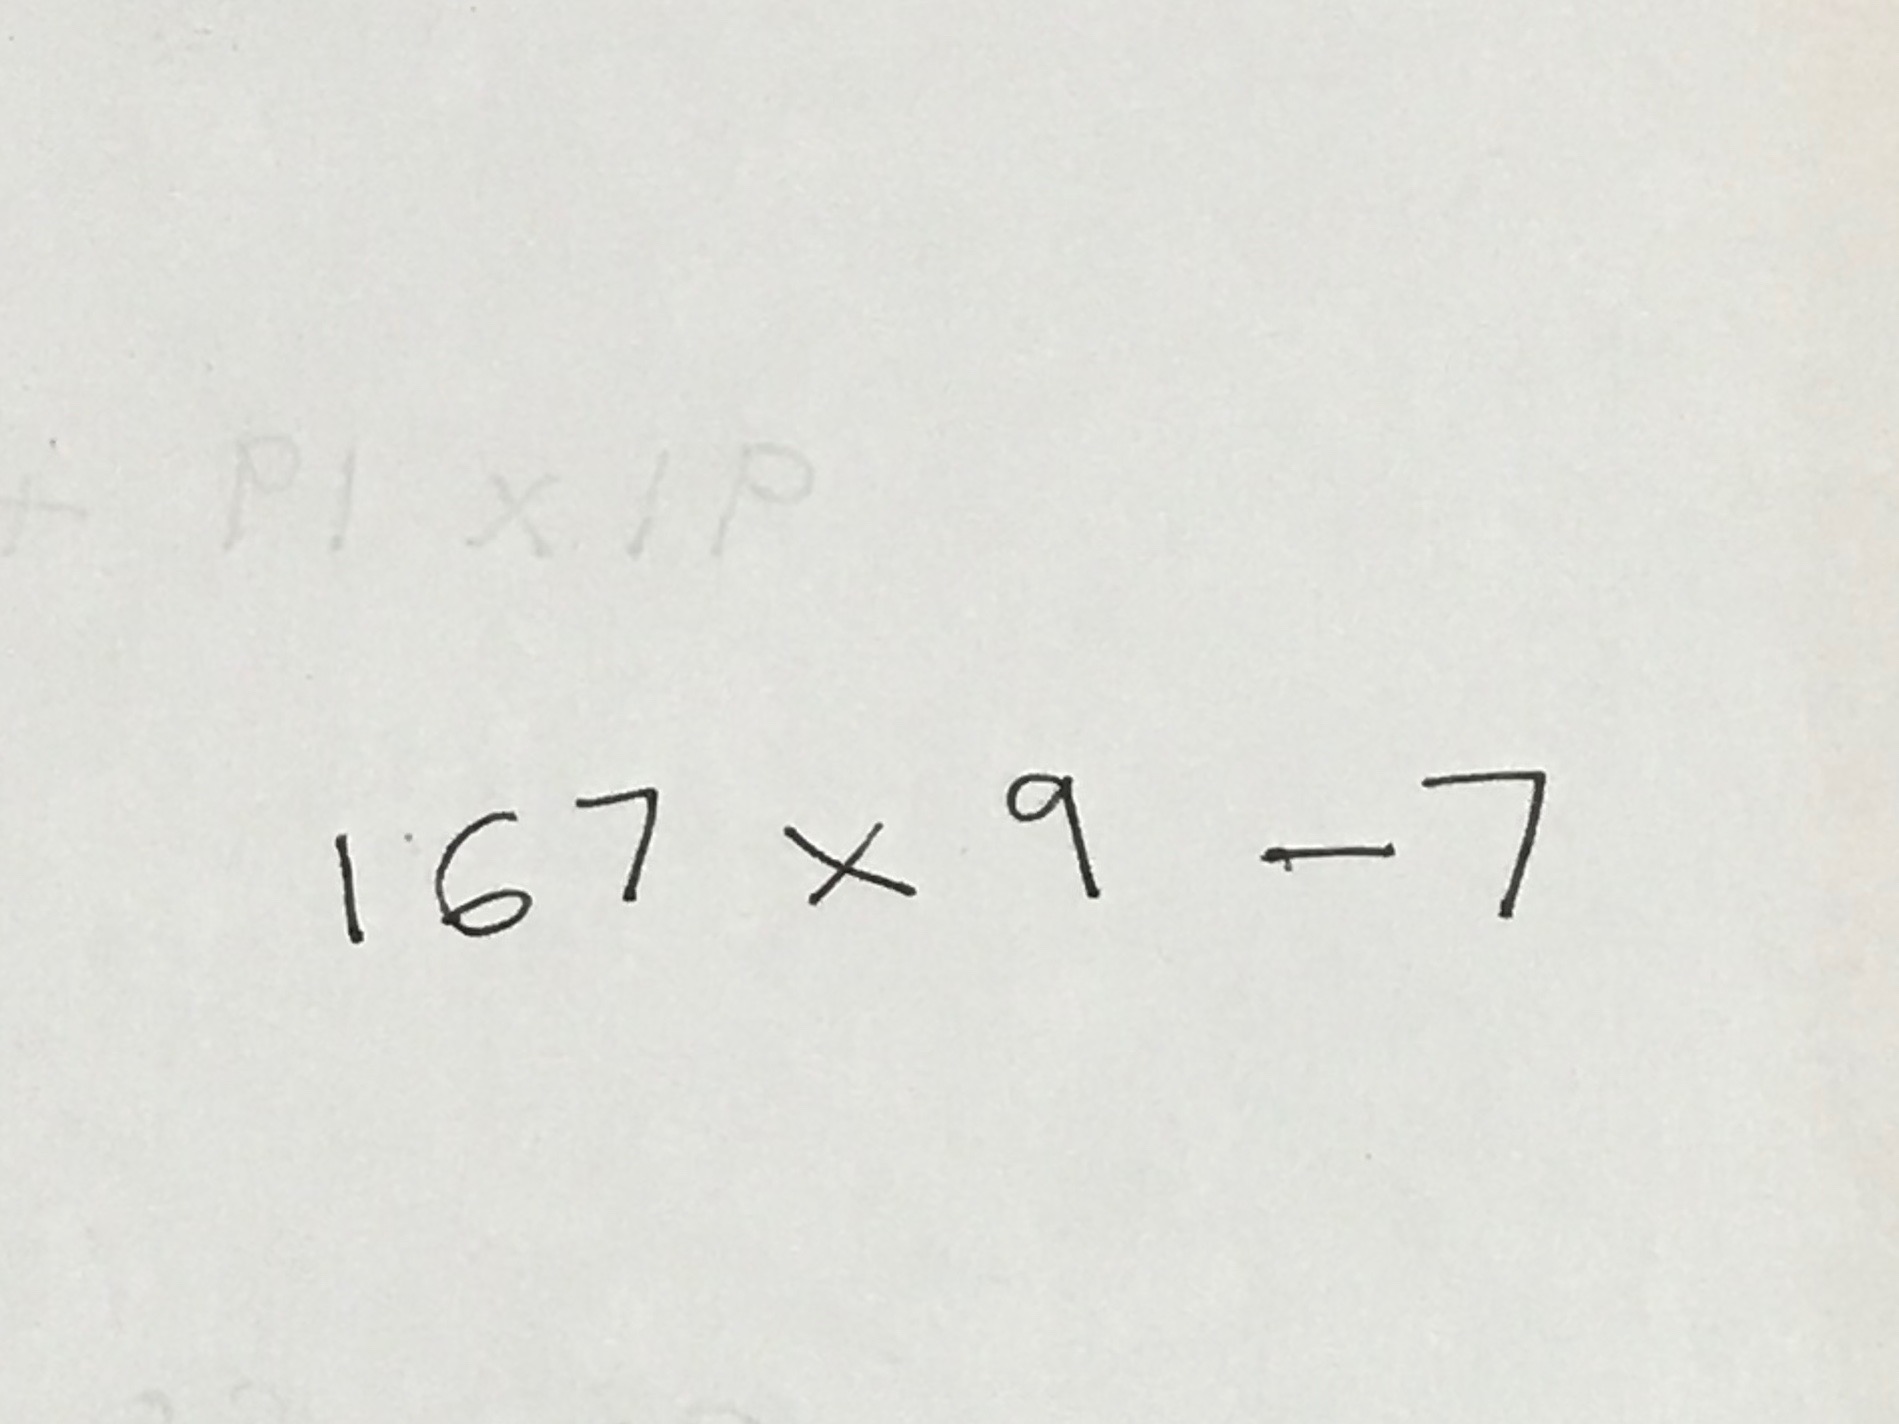 167 × 9 - 7